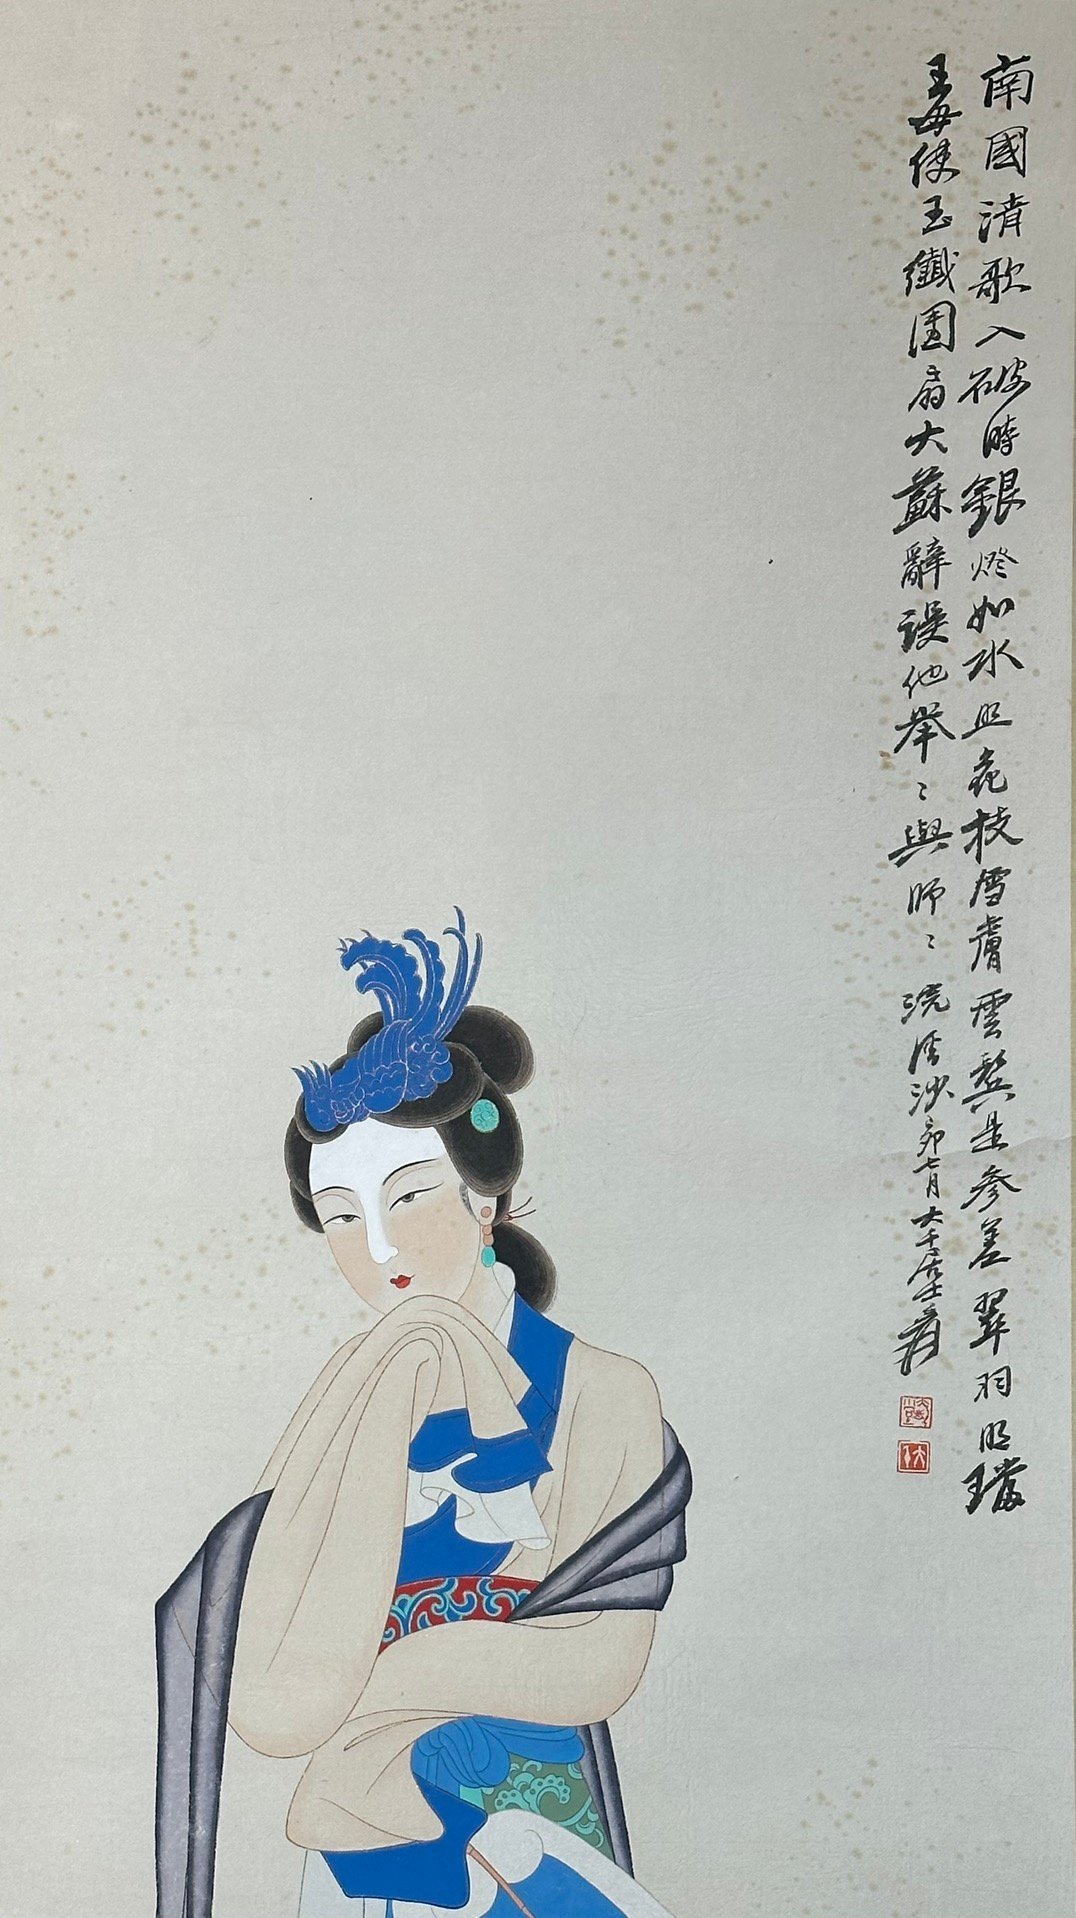 南國清歌入破時銀燈如水照花枝雪膚雲鬢是參差翠羽明璫
王母使玉纖團扇大蘇辭誤他舉舉與師師浣溪沙卯七月大千居士爰